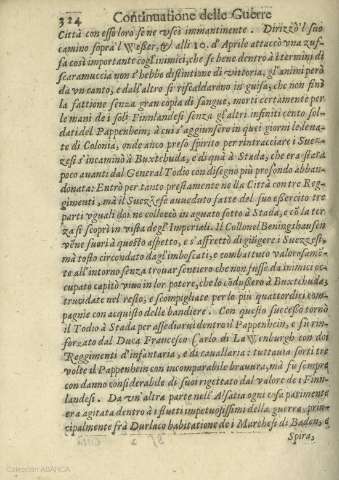 324 Continuatione delle Guerre
Città con esso loro se ne vscì immantinente. Dirizzò'l suo
camino sopra'l Weßer, & alli 10. d'Aprile attaccò vna zuf-
fa così importante cogl'inimici, che se bene dentro à i termini di
scaramuccia non s'hebbe distintione di vittoria, gl'animi però
da vn canto, e dall'altro si riscaldarono in guisa, che non finì
la fattione senza gran copia di sangue, morti certamente per
le mani de i soli Finnlandesi senza gl'altri infiniti cento sol-
dati del Pappenheim, à cui s'aggiunsero in quei giorni le lena-
te di Colonia, onde anco preso spirito per rintracciare i Suez-
zesi s'incaminò à Buxtehuda, e di quà à Stada, che era stata
poco auanti dal General Todio con disegno più profondo abban-
donata: Entrò per tanto prestamente nella Città con tre Reg-
gimenti, mà il Suezzese aueduto fatte del suo essercito tre
parti vguali doi ne collocò in aguato sotto à Stada, e cō la ter-
za si scoprì in vista degl'Imperiali. Il Collonel Beningthausen
vēne fuori à questo aspetto, e s'affrettò di giūgere i Suezzesi,
mà tosto circondato dagl'imboscati, e combattuto valorosamē-
te all'intorno senza trouar sentiero che non fusse da inimici oc-
cupato capitò viuo in lor potere, che lo cōdussero à Buxtehuda,
trucidate nel resto, e scompigliate per lo più quattordici com-
pagnie con acquisto delle bandiere. Con questo successo tornò
il Todio à Stada per assediarui dentro il Pappenheim, e fù rin-
forzato dal Duca Francesco Carlo di LaWenburgh con doi
Reggimenti d'infantaria, e di cauallaria: tuttauia sortì tre
volte il Pappenheim con incomparabile brauura, mà fù sempre
con danno considerabile di suoi rigettato dal valore de i Finn-
landesi. Da vn'altra parte nell'Alsatia ogni cosa parimente
era agitata dentro à i flutti impetuosissimi della guerra, prin-
cipalmente frà Durlaco habitatione de i Marchesi di Baden, e
Spira,
Colección ABANCA